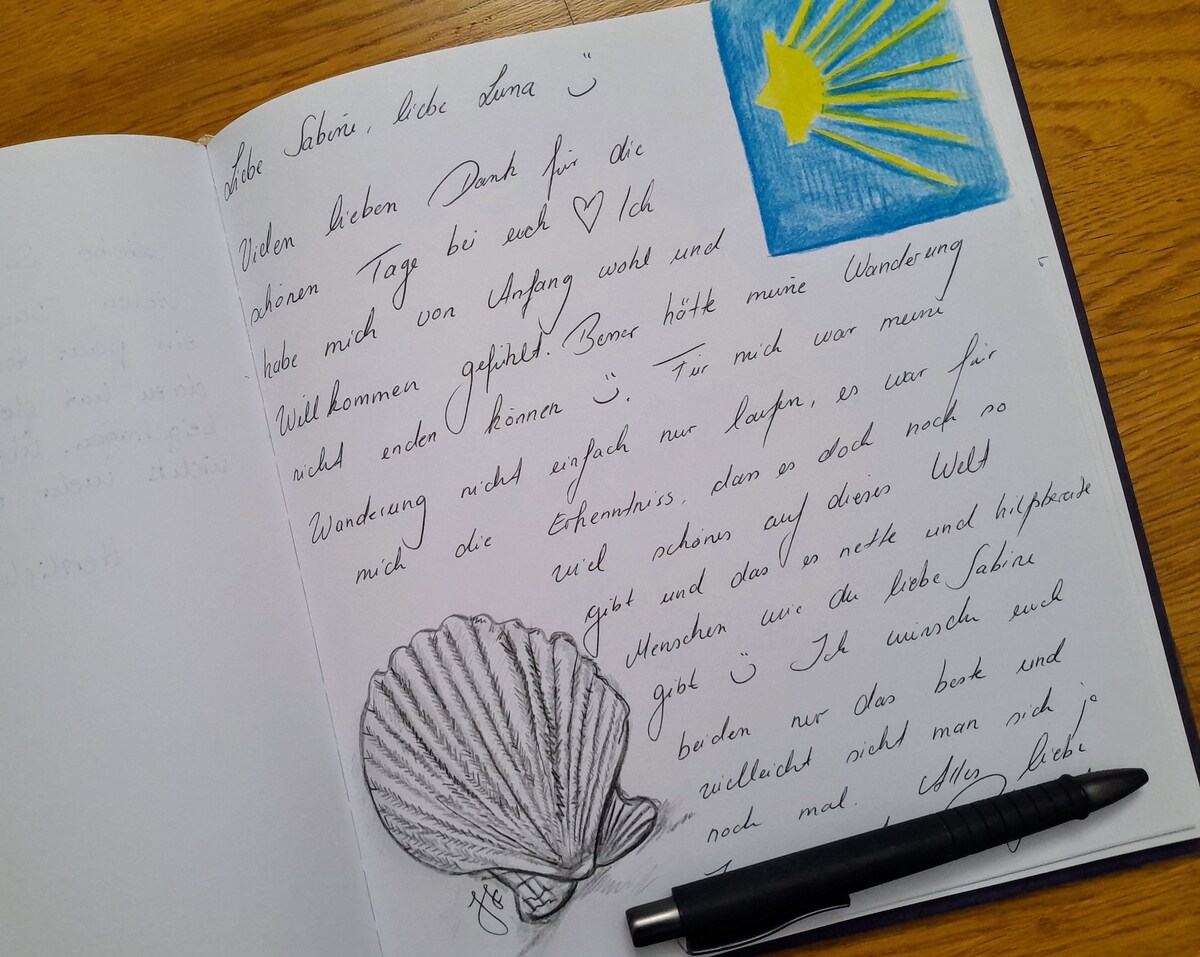 Liebe Sabine, liebe Luna
Vielen lieben Dank für die
schönen Tage bei euch ♡ Ich
habe mich von Anfang wohl und
Willkommen gefühlt. Besser hätte meine Wanderung
nicht enden können. Für mich war meine
Wanderung nicht einfach nur laufen, es war für
mich die Erkenntniss, dass es doch noch so
viel schönes auf dieses Welt
gibt und das es nette und hilfsbereite
Menschen wie du liebe Sabine
gibt Ich wünsche euch
beiden nur das beste und
vielleicht sieht man sich ja
noch mal. Alles liebe